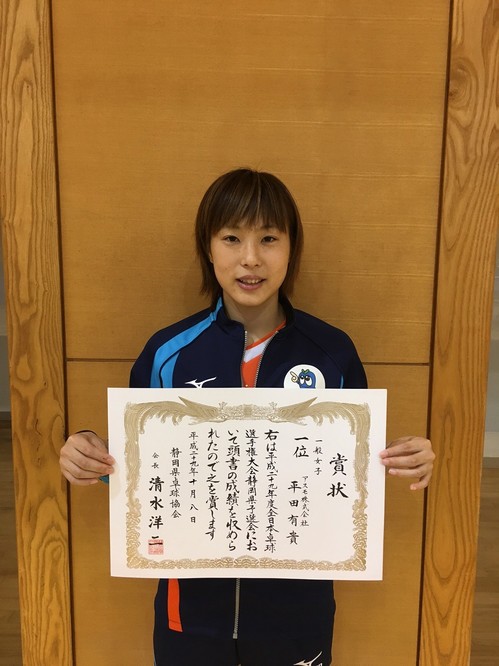 賞状
一般女子
一位
アスモ株式会社
平田有貴
右は平成二十九年度全日本卓球
選手権大会静岡県予選会にお
いて頭書の成績を収めら
れたので之を賞します
平成二十九年十月八日
静岡県卓球協会
会長 清水洋二